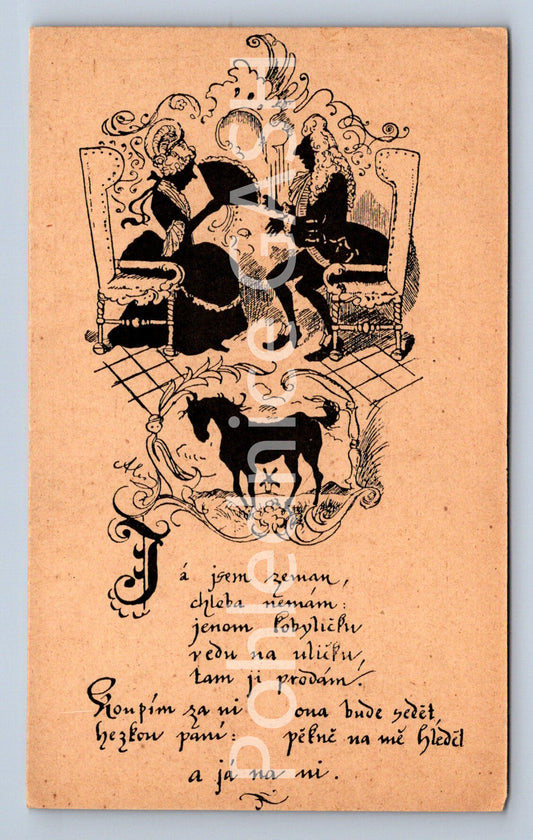 Aleš
Já jsem zeman,
chleba nemám:
jenom kobyličku
vedu na uličku,
tam ji prodám!
Koupím za ni ona bude sedět,
hezkou paní: pěkně na mě hledět
a já na ni.
Pohlednice GASH